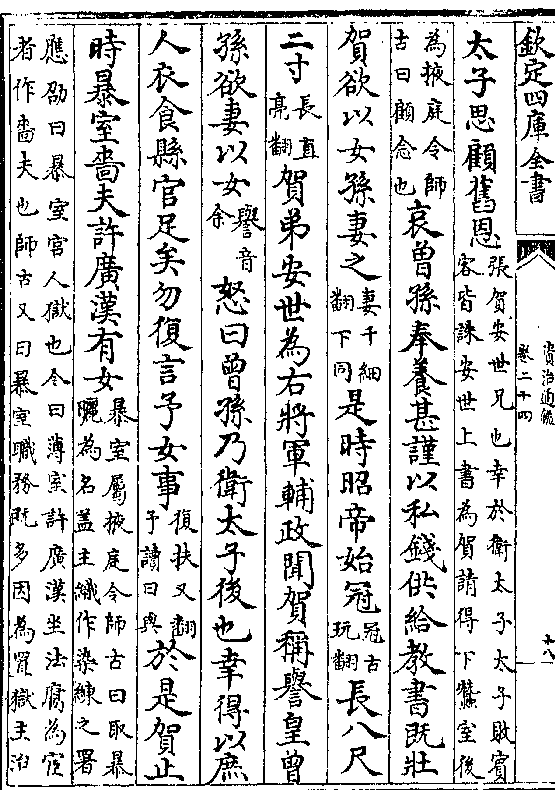 欽定四庫全書
資治通鑑
卷二十四
十八
太子思顧舊恩張賀安世兄也幸於衛太子太子敗賓
客皆誅安世上書為賀請得下蠶室後
為掖庭令師
古曰顧念也哀曾孫奉養甚謹以私錢供給教書既壯
賀欲以女孫妻之妻千細
翻下同是時昭帝始冠冠古
玩翻長八尺
二寸長直
亮翻賀弟安世為右將軍輔政聞賀稱譽皇曾
孫欲妻以女譽音
余怒曰曾孫乃衛太子後也幸得以庶
人衣食縣官足矣勿復言予女事復扶又翻
予讀曰與於是賀止
時暴室嗇夫許廣漢有女暴室屬掖庭令師古曰取暴
曬為名蓋主織作染練之署
應劭曰暴室宮人獄也今曰薄室許廣漢坐法腐為宦
者作嗇夫也師古又曰暴室職務既多因為置獄主治